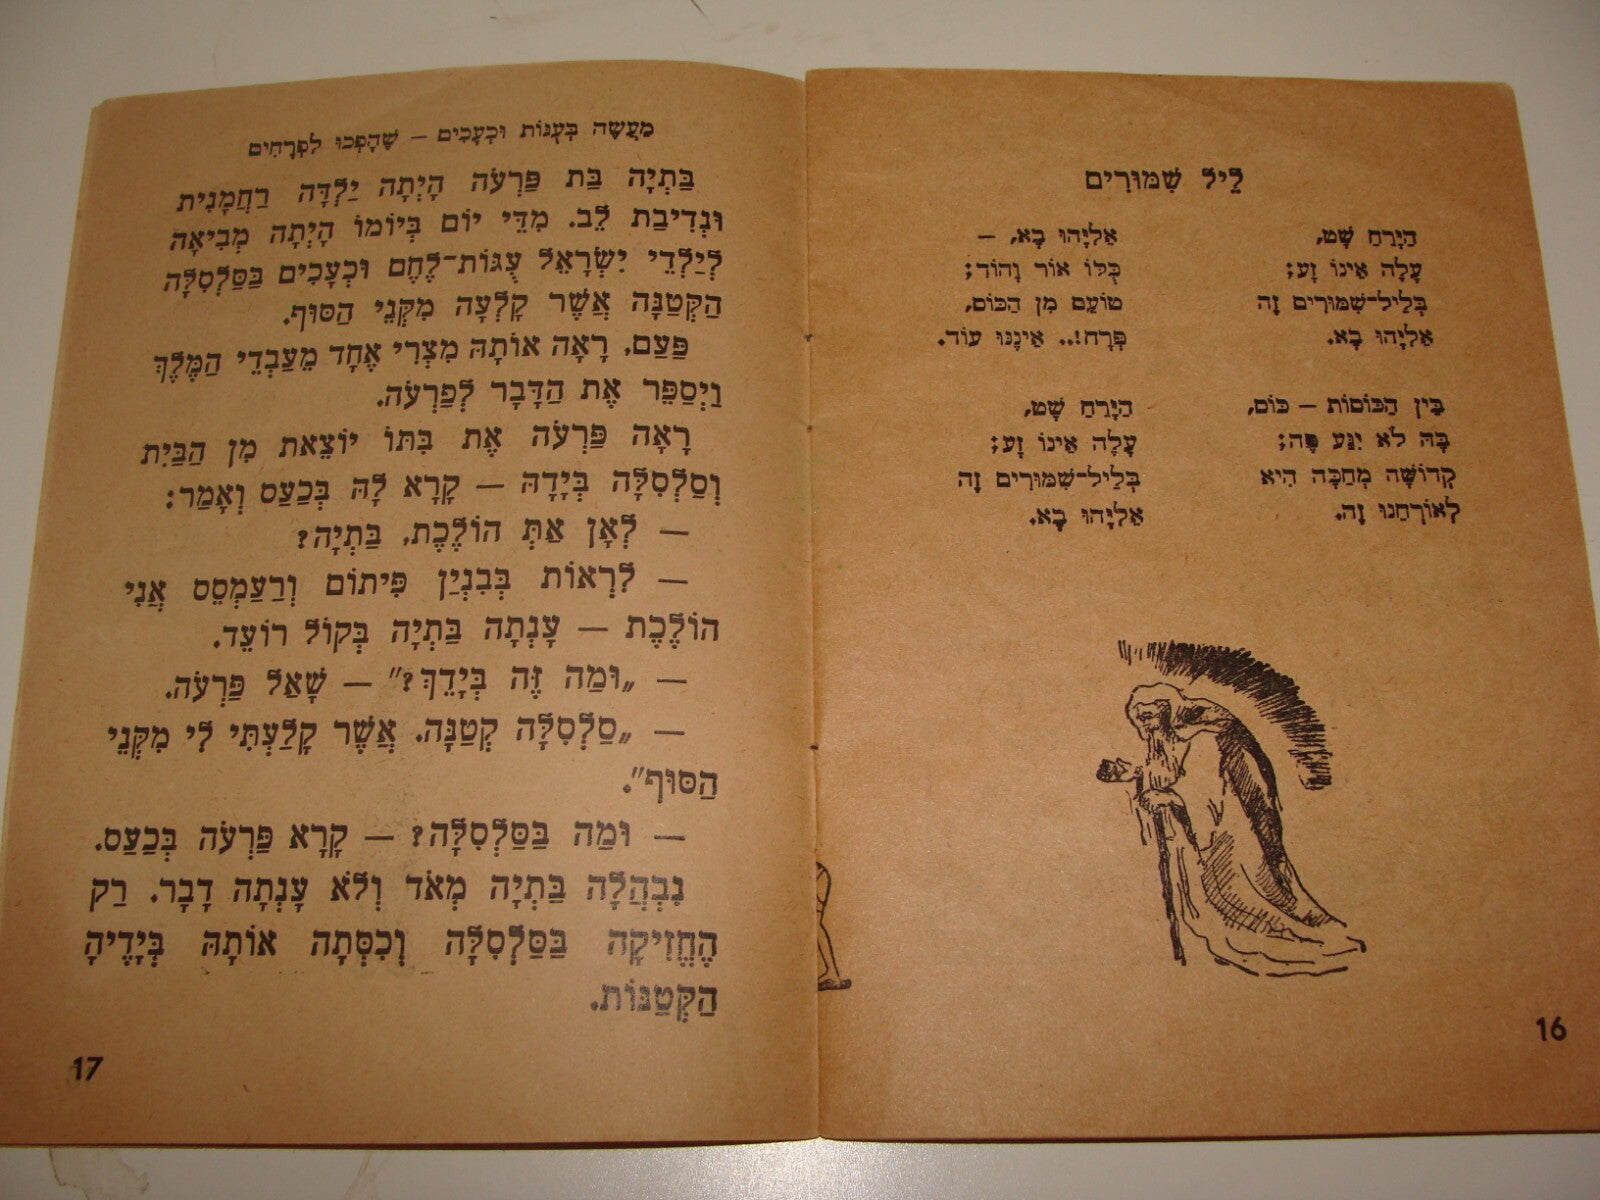 לֵיל שִׁמּוּרִים
הַיָּרֵחַ שָׁט,
עָלֶה אֵינוֹ זָע;
בְּלֵיל-שִׁמּוּרִים זֶה
אֵלִיָּהוּ בָּא.
בֵּין הַכּוֹסוֹת – כּוֹס,
בָּהּ לֹא יִגַּע פֶּה;
קְדוֹשָׁה מְחַכָּה הִיא
לְאוֹרְחֵנוּ זֶה.
אֵלִיָּהוּ בָּא, –
כֻּלּוֹ אוֹר וָהוֹד;
טוֹעֵם מִן הַכּוֹס,
פָּרַח!.. אֵינֶנּוּ עוֹד.
הַיָּרֵחַ שָׁט,
עָלֶה אֵינוֹ זָע;
בְּלֵיל-שִׁמּוּרִים זֶה
אֵלִיָּהוּ בָּא.
16
מַעֲשֶׂה בְּעֻגּוֹת וּכְעָכִים – שֶׁהָפְכוּ לִפְרָחִים
בַּתְיָה בַּת פַּרְעֹה הָיְתָה יַלְדָּה רַחֲמָנִית
וּנְדִיבַת לֵב. מִדֵּי יוֹם בְּיוֹמוֹ הָיְתָה מְבִיאָה
לְיַלְדֵי יִשְׂרָאֵל עֻגּוֹת-לֶחֶם וּכְעָכִים בַּסַּלְסִלָּה
הַקְּטַנָּה אֲשֶׁר קָלְעָה מִקְּנֵי הַסּוּף.
פַּעַם, רָאָה אוֹתָהּ מִצְרִי אֶחָד מֵעַבְדֵי הַמֶּלֶךְ
וַיְסַפֵּר אֶת הַדָּבָר לְפַרְעֹה.
רָאָה פַּרְעֹה אֶת בִּתּוֹ יוֹצֵאת מִן הַבַּיִת
וְסַלְסִלָּה בְּיָדָהּ – קָרָא לָהּ בְּכַעַס וְאָמַר:
– לְאָן אַתְּ הוֹלֶכֶת, בַּתְיָה?
– לִרְאוֹת בְּבִנְיַן פִּיתוֹם וְרַעַמְסֵס אֲנִי
הוֹלֶכֶת – עָנְתָה בַּתְיָה בְּקוֹל רוֹעֵד.
– „וּמַה זֶּה בְּיָדֵךְ?" – שָׁאַל פַּרְעֹה.
– „סַלְסִלָּה קְטַנָּה, אֲשֶׁר קָלַעְתִּי לִי מִקְּנֵי
הַסּוּף".
– וּמַה בַּסַּלְסִלָּה? – קָרָא פַּרְעֹה בְּכַעַס.
נִבְהֲלָה בַּתְיָה מְאֹד וְלֹא עָנְתָה דָבָר. רַק
הֶחֱזִיקָה בַּסַּלְסִלָּה וְכִסְּתָה אוֹתָהּ בְּיָדֶיהָ
הַקְּטַנּוֹת.
17